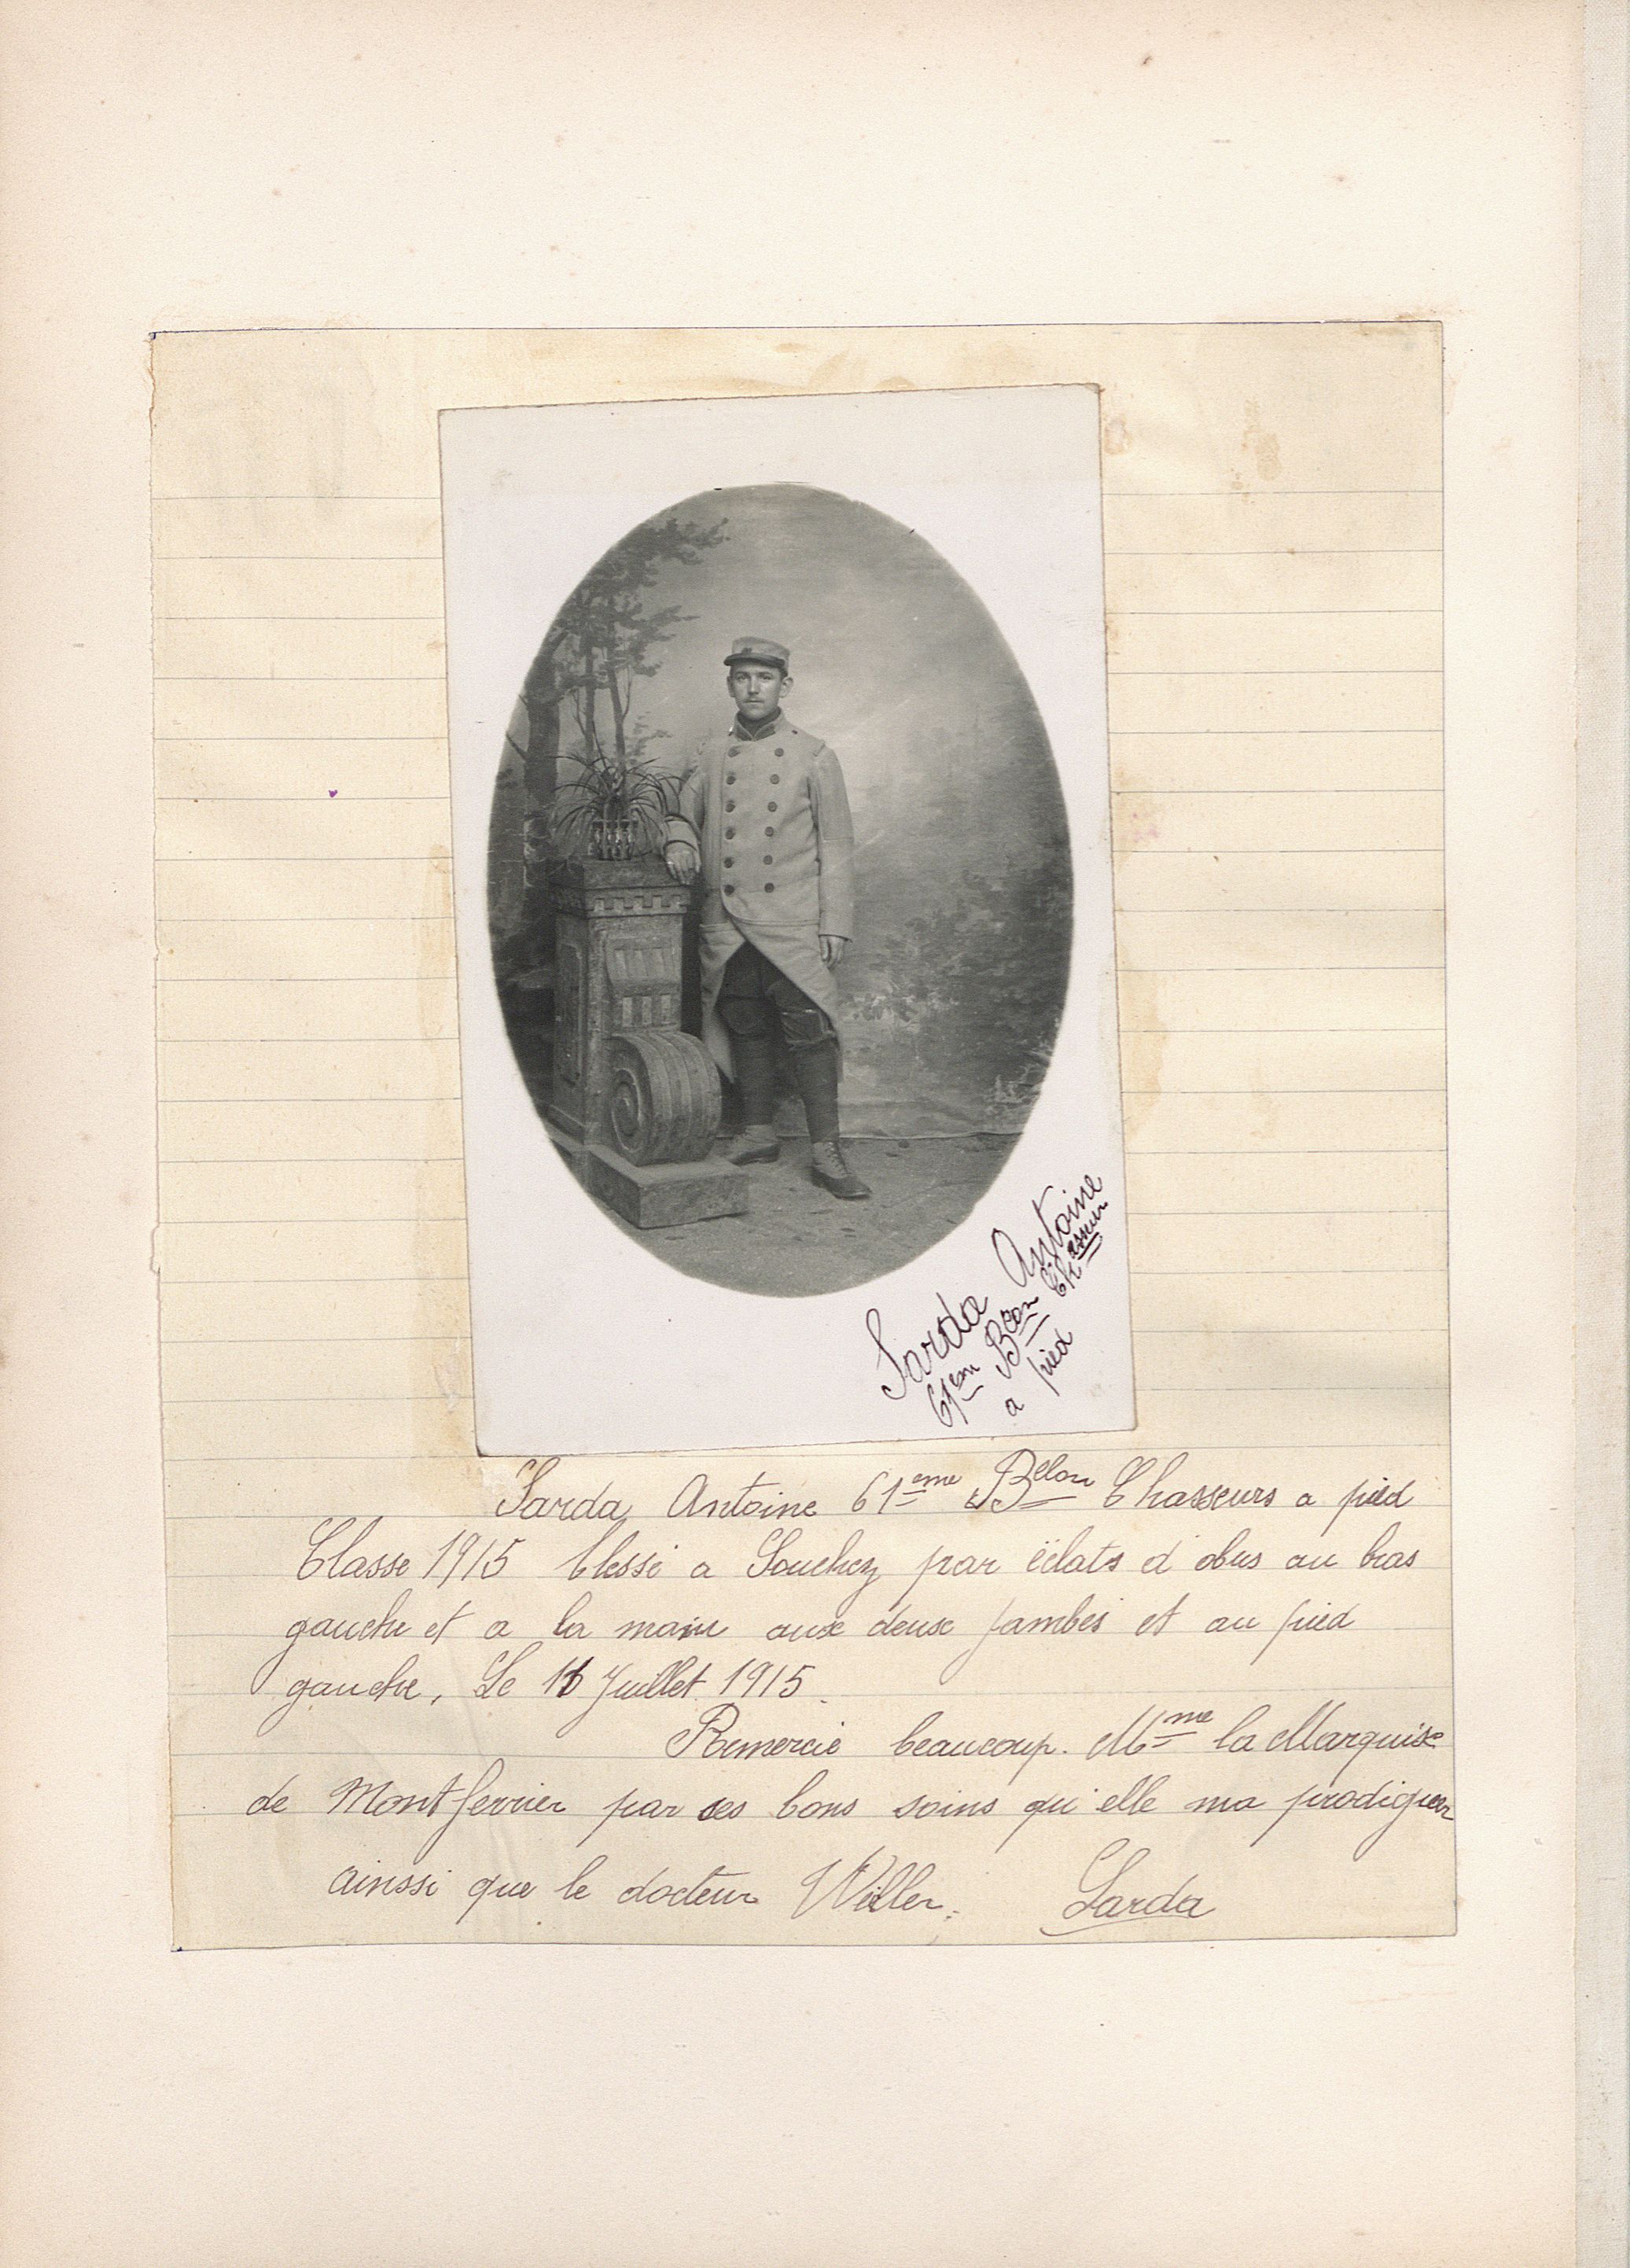 Sarda Antoine
61em Beon Chasseur
a pied
Sarda Antoine 61eme Belon Chasseurs a pied
Classe 1915 blessé a Souchez par éclats d'obus au bras
gauche et a la main aux deux jambes et au pied
gauche, Le Juillet 1915.
Remercie beaucoup. Mme la Marquise
de Montferrier par ses bons soins qu'elle ma prodiguer
ainssi que le docteur Willer. Sarda